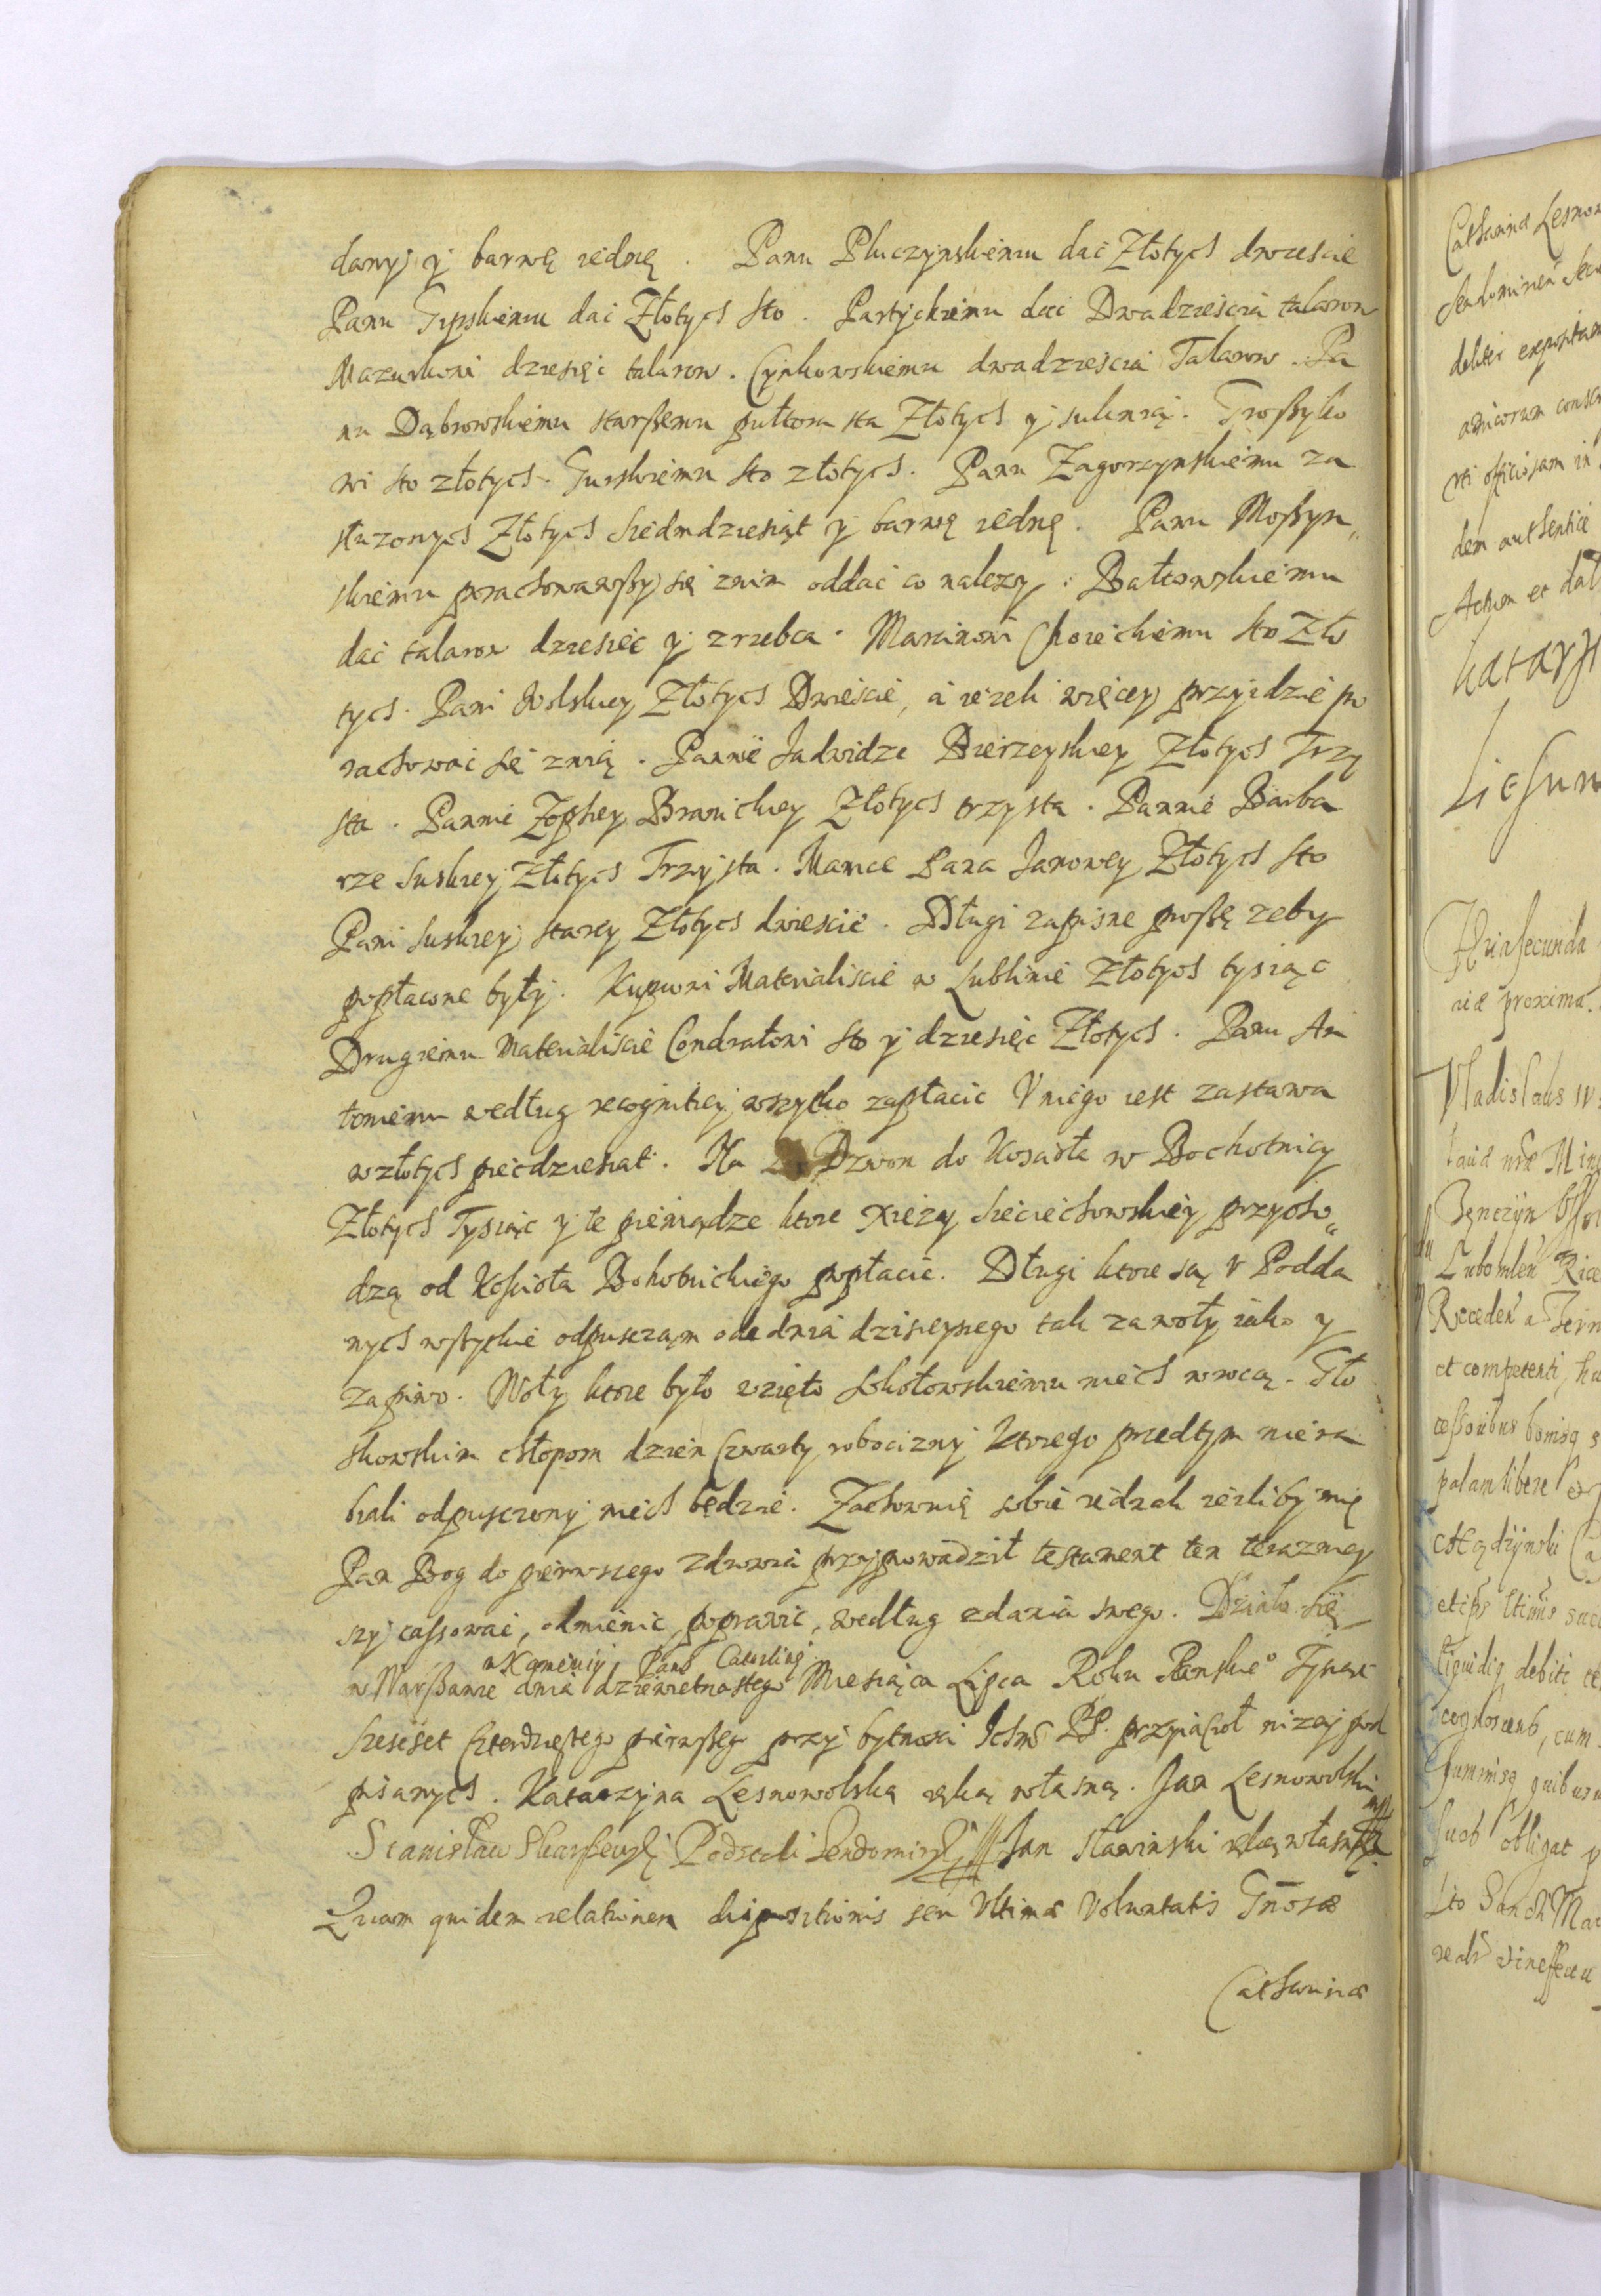 dany y barwę iednę . Panu Pluczynskiemu dac Złotych dwiescie
Panu Gypskiemu dać Złotych sto . Partyckiemu dać Dwadziescia talarow
Mazurkowi dziesięć talarow . Cynkowskiemu dwadziescia Talarow . Pa
nu Dąbrowskiemu starßemu pułtora sta Złotych y suknią . Großyko
wi sto złotych . Gurskiemu sto złotych . Panu Zagorzynskiemu za
służonych Złotych siedmdziesiąt y barwę iednę . Panu Moßyn„
skiemu porachowawßy się znim oddać co nalezy . Bałtowskiemu
dać talarow dziesiec y zrzebca . Marcinowi Choieckiemu sto Zło
tych . Pani Wolskiey Złotych Dwieście, a ieżeli więcey przyidzie po
rachować się znią . Pannie Jadwidze Bierzeyskiey Złotych Trzy
sta . Pannie Zophiey Branickiey Złotych trzysta . Pannie Barba
rze Suskiey Złotych Trzysta . Mamce Pana Janowey Złotych sto
Pani Suskiey starey Złotych dwieście . Długi zapisne proßę zeby
popłacone były . Kupcowi Materialiscie w Lublinie Złotych tysiąc
Drugiemu Materialiscie Condratowi sto y dziesięć Złotych . Panu An
toniemu według recognitiey wszytko zapłacic V niego iest zastawa
w złotych piećdziesiat . Na Dzwon do Kosciola w Bochotnicy
Złotych Tysiąc y te pieniądze ktore Xięży Sieciechowskiey przycho„
dzą od Kosciola Bohotnickiego popłacic . Długi ktore są v Podda
nych wßytkie odpusczam ode dnia dzisieyszego tak za woły iako y
za piwo . Woły ktore było wzięto Sokołowskiemu niech wrocą . Gło
skowskim chłopom dzien Czwarty robocizny ktorego przedtym niera
biali odpusczony niech będzie . Zachownię sobie iednak iezliby mię
Pan Bog do pierwszego zdrowia przyprowadził testament ten terazniey
szy cassować, odmienic, poprawic, według zdania swego . Działo się
w Kamienicy Pana Caterliniey
w Warßawie dnia dziewietnastego Miesiąca Lipca Roku Panskieo Tysiąc
szescset Czterdziestego pierwßego przy bytnosci Ichmo PP. przyiacioł nizey pod
pisanych . Katarzyna Lesnowolska ręką własną . Jan Lesnowolski
mp
Stanisław Skarßewski Podsedek Sendomirski Jan Sławinski ręką własną
Quam quidem relationem dispositionis seu Vltimæ Voluntatis Gnosæ
Catharinæ
Catharinæ Lesnow
deliter expositam
amicorum consc
rti officiosam in
dem authentice
Actum et dat
Katarzy
Liesnw
Feria secunda
riæ proxima
Vladislaus IV
et competenti, ha
palam libere
liquidiq debiti ce
cognoscenb, cum
Summisq quibus
Suob obligat p